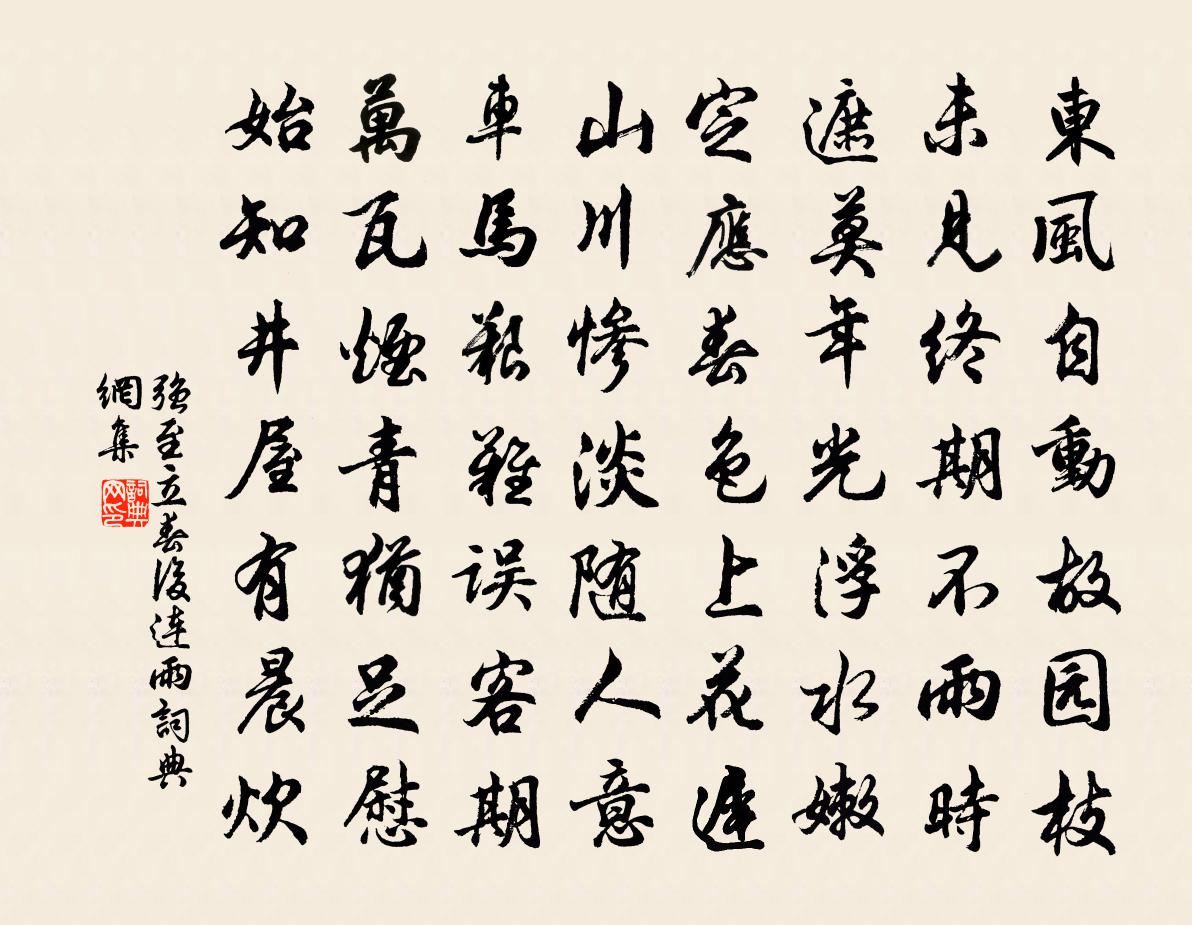 東風自動故园枝
未見終期不雨時
遮莫年光浮水嫩
定應春色上花遲
山川慘淡随人意
車馬艱難误客期
萬瓦煙青猶足慰
始知井屋有晨炊
強至立春後連雨詞典
網集
詞典网印